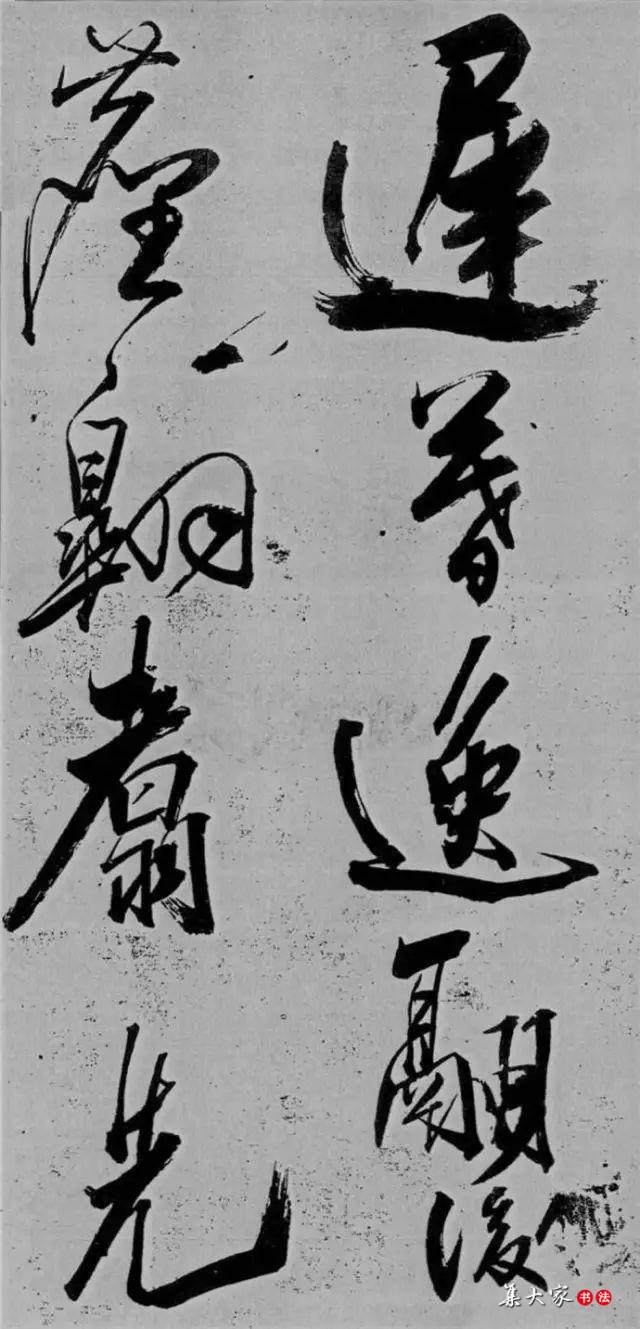 遲暮逸翮後
塵翱翥先
集大家书法